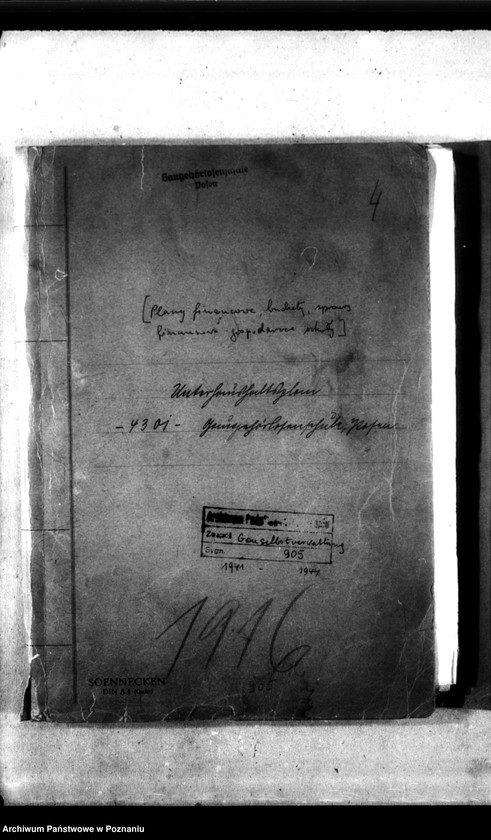 Gaugehörlosenschule
Posen
4
[Plany finansowe, budżety, sprawy
finansowo gospodarcze szkoły]
Unterhaushaltsplan
- 4301 - Gaugehörlosenschule, Posen.
Archiwum Państ
Zespół Gauselbstverwaltung
Sign. 905
1941 - 1944
1916
905
SOENNECKEN
DIN A 4
Archiwum Państwowe w Poznaniu